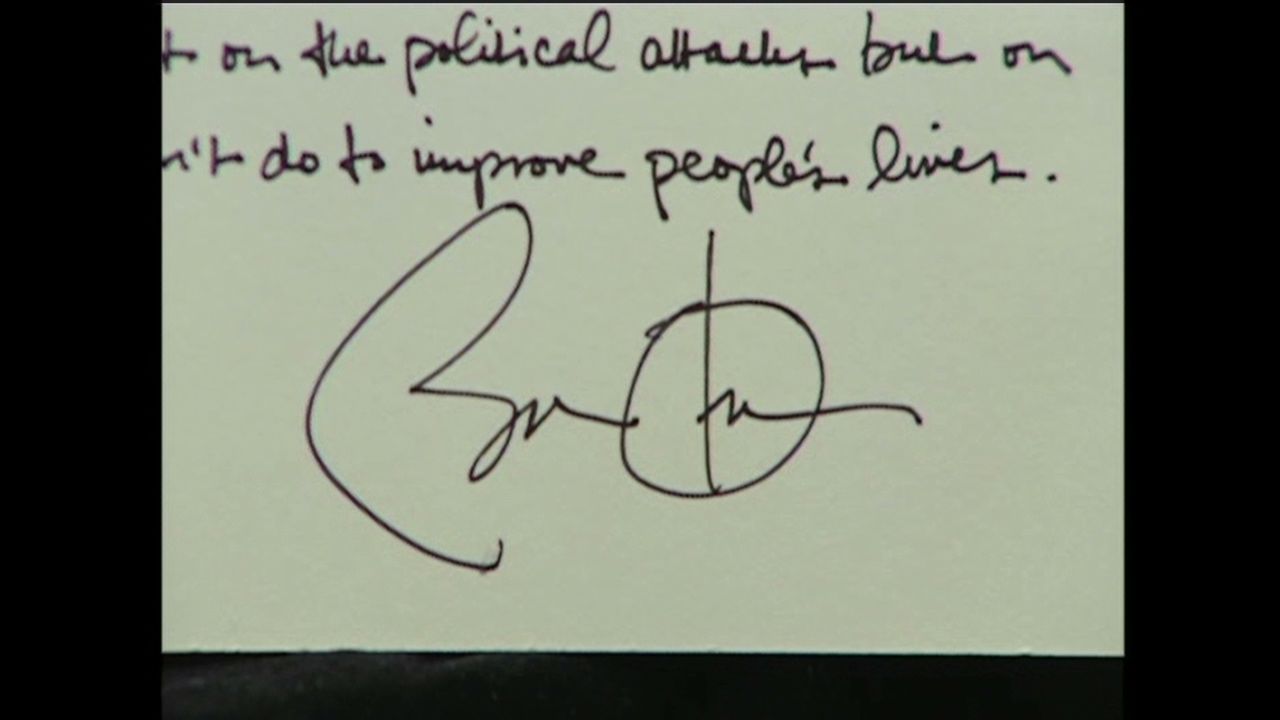 on the political attacks but on
n't do to improve people's lives.